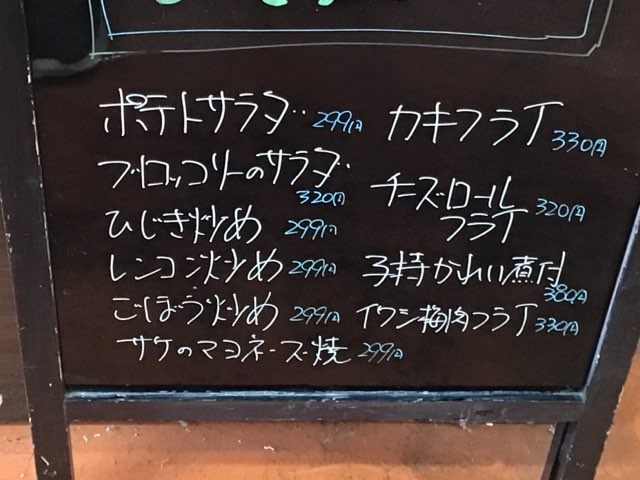 ポテトサラダ 299円
ブロッコリーのサラダ
320円
ひじき炒め 299円
レンコン炒め 299円
ごぼう炒め 299円
サケのマヨネーズ焼 299円
カキフライ 330円
チーズロール
フライ 320円
子持かれい煮付
380円
イワシ梅肉フライ 330円